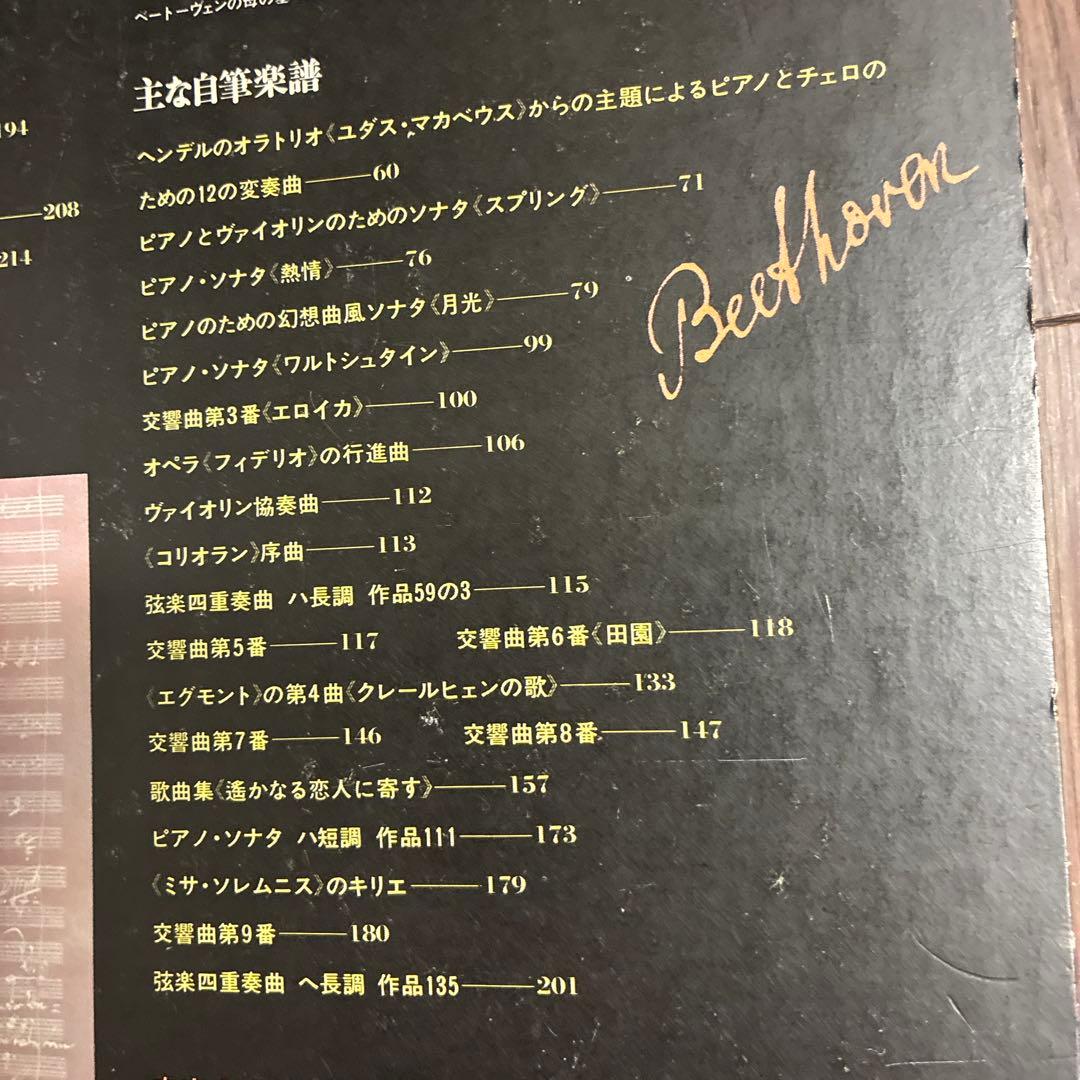 194
208
214
主な自筆楽譜
ヘンデルのオラトリオ《ユダス・マカベウス》からの主題によるピアノとチェロの
ための12の変奏曲——60
ピアノとヴァイオリンのためのソナタ《スプリング》——71
ピアノ・ソナタ《熱情》——76
ピアノのための幻想曲風ソナタ《月光》——79
ピアノ・ソナタ《ワルトシュタイン》——99
交響曲第3番《エロイカ》——100
オペラ《フィデリオ》の行進曲——106
ヴァイオリン協奏曲——112
《コリオラン》序曲——113
弦楽四重奏曲 ハ長調 作品59の3——115
交響曲第5番——117 交響曲第6番《田園》——118
《エグモント》の第4曲《クレールヒェンの歌》——133
交響曲第7番——146 交響曲第8番——147
歌曲集《遙かなる恋人に寄す》——157
ピアノ・ソナタ ハ短調 作品111——173
《ミサ・ソレムニス》のキリエ——179
交響曲第9番——180
弦楽四重奏曲 ヘ長調 作品135——201
Beethoven